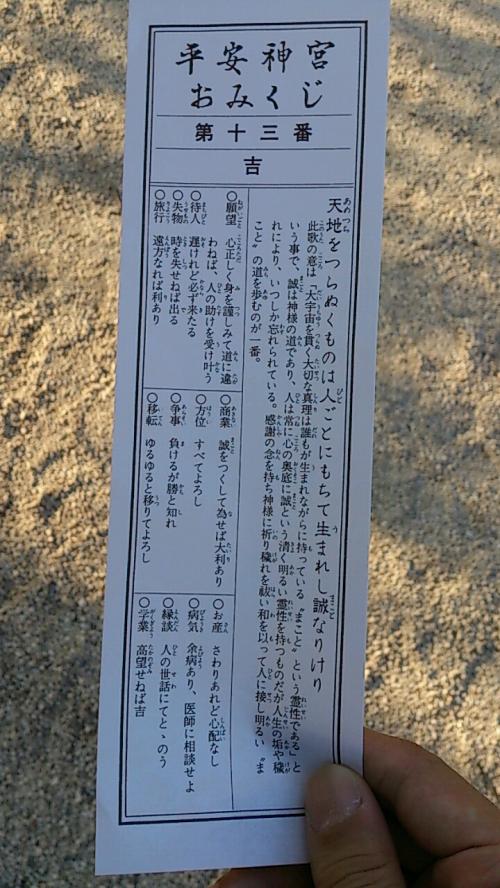 平安神宮
おみくじ
第十三番
吉
天地をつらぬくものは人ごとにもちて生まれし誠なりけり
此歌の意は「大宇宙を貫く大切な真理は誰もが生まれながらに持っている〝まこと〟という霊性である」と
いう事で、誠は神様の道であり、人は常に心の奥底に誠という清く明るい霊性を持つものだが人生の垢や穢
れにより、いつしか忘れられている。感謝の念を持ち神様に祈り穢れを祓い和を以って人に接し明るい〝ま
こと〟の道を歩むのが一番。
○願望 心正しく身を謹しみて道に違
わねば、人の助けを受け叶う
○待人 遅けれど必ず来たる
○失物 時を失せねば出る
○旅行 遠方なれば利あり
○商業 誠をつくして為せば大利あり
○方位 すべてよろし
○争事 負けるが勝と知れ
○移転 ゆるゆると移りてよろし
○お産 さわりあれど心配なし
○病気 余病あり、医師に相談せよ
○縁談 人の世話にてとゝのう
○学業 高望せねば吉